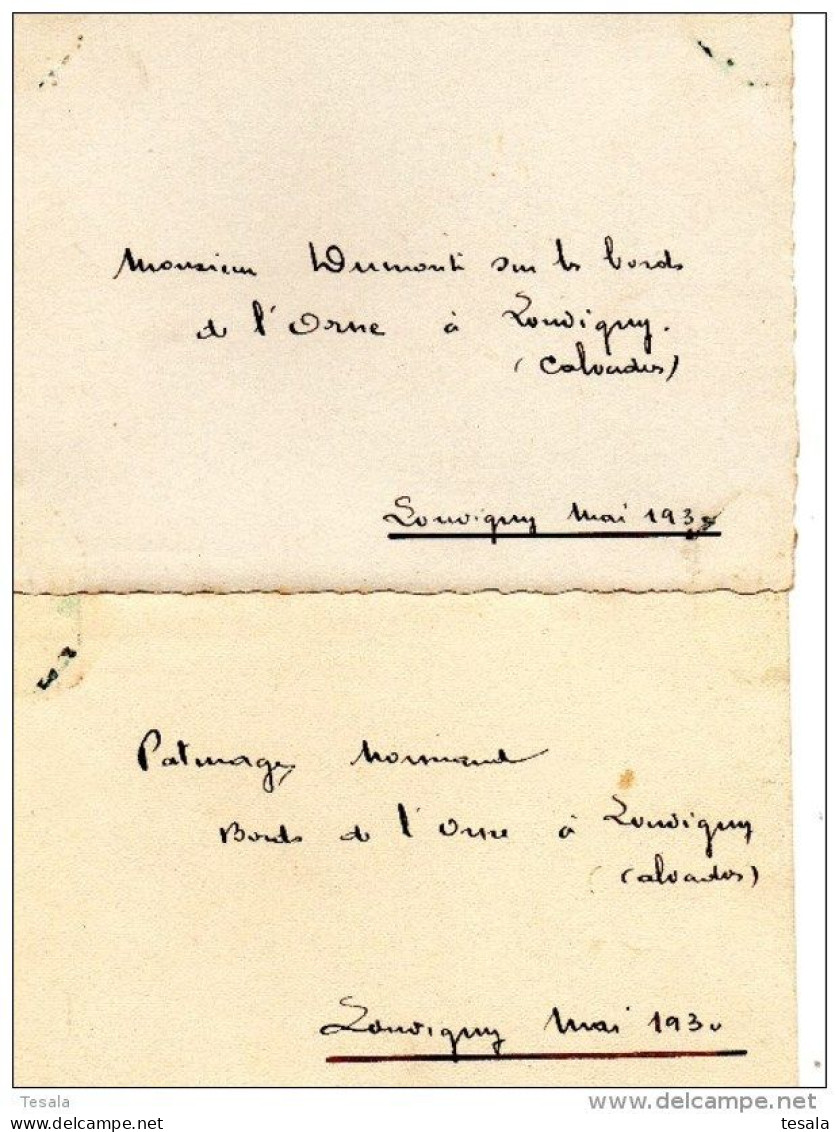 Monsieur Dumont sur les bords
de l'Orne à Louvigny.
(Calvados)
Louvigny Mai 1930
Paturage Normand
Bords de l'Orne à Louvigny
(Calvados)
Louvigny Mai 1930
Tesala
www.delcampe.net
tesala